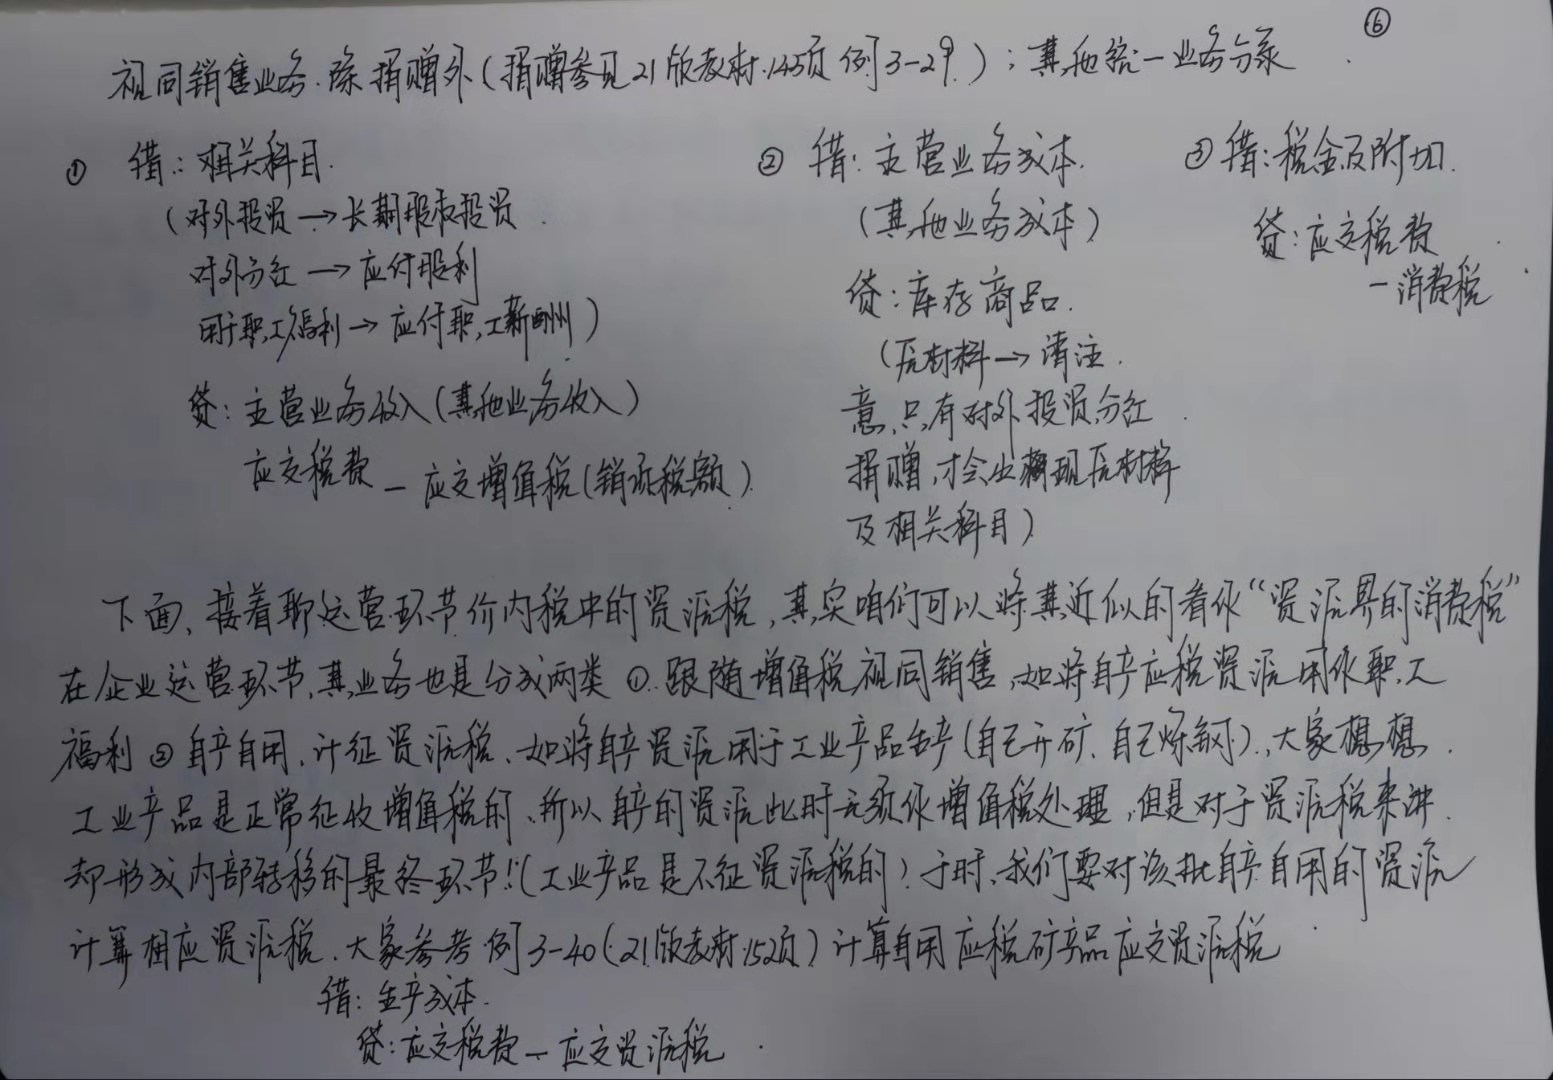 ⑥
视同销售业务.除捐赠外(捐赠参见21版教材.145页 例3-29.);其他统一业务分录
① 借:相关科目.
(对外投资→长期股权投资
对外分红→应付股利
用于职工福利→应付职工薪酬)
贷:主营业务收入(其他业务收入)
应交税费—应交增值税(销项税额)
② 借:主营业务成本.
(其他业务成本)
贷:库存商品.
(原材料→请注.
意,只有对外投资分红
捐赠,才会出现原材料
及相关科目)
③ 借:税金及附加.
贷:应交税费
-消费税
下面,接着聊运营环节价内税中的资源税,其实咱们可以将其近似的看作“资源界的消费税”
在企业运营环节,其业务也是分成两类 ①.跟随增值税视同销售,如将自产应税资源用作职工
福利 ② 自产自用,计征资源税、如将自产资源用于工业产品生产(自己开矿、自己炼钢),大家想想.
工业产品是正常征收增值税的、所以自产的资源此时无须作增值税处理,但是对于资源税来讲.
却形成内部转移的最终环节!(工业产品是不征资源税的)于时、我们要对该批自产自用的资源
计算相应资源税.大家参考例3-40(21版教材152页)计算自用应税矿产品应交资源税
借:生产成本.
贷:应交税费—应交资源税